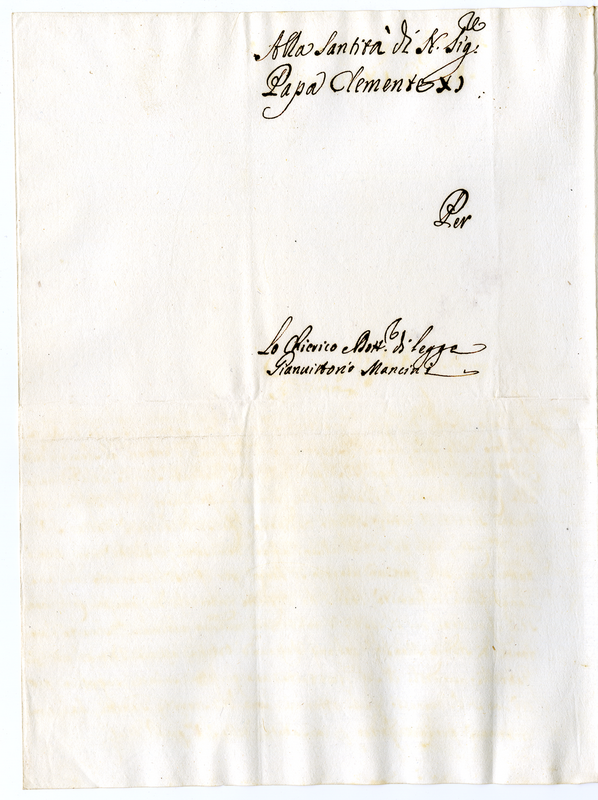 Alla Santità di N. Sig.re
Papa Clemente XI
Per
Lo Chierico e Dott.re di legge
Gianvittorio Mancini